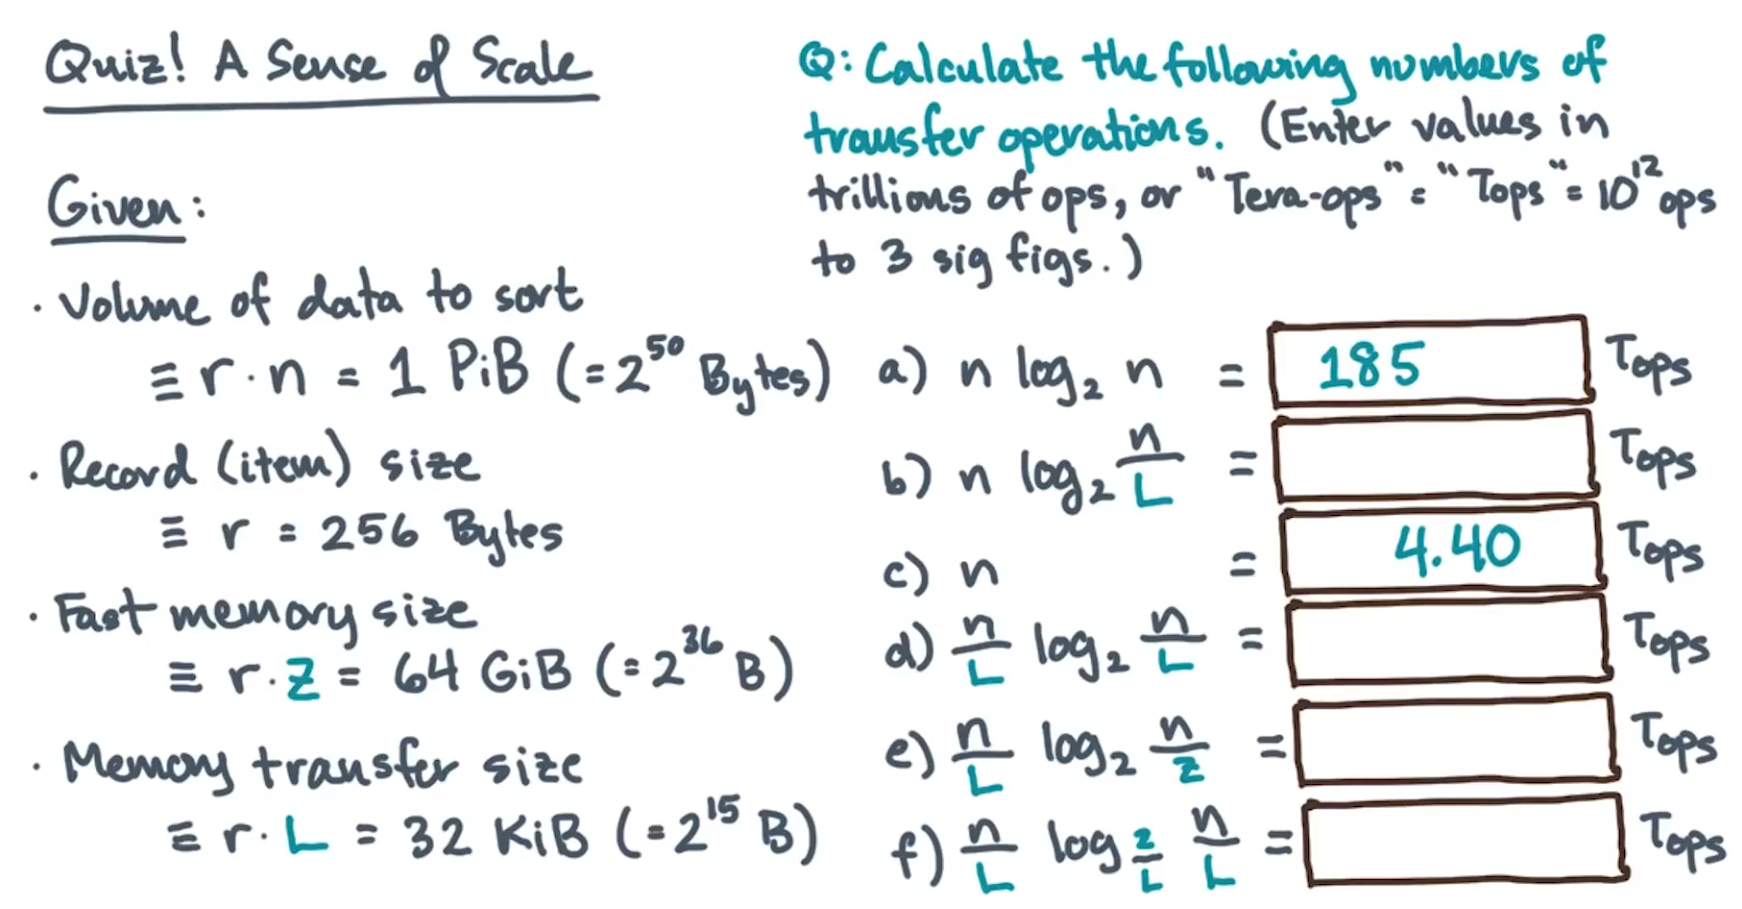 Quiz! A Sense of Scale
Given:
· Volume of data to sort
≡ r·n = 1 PiB (=2^50 Bytes)
· Record (item) size
≡ r = 256 Bytes
· Fast memory size
≡ r·Z = 64 GiB (=2^36 B)
· Memory transfer size
≡ r·L = 32 KiB (=2^15 B)
Q: Calculate the following numbers of
transfer operations. (Enter values in
trillions of ops, or "Tera-ops" = "Tops" = 10^12 ops
to 3 sig figs.)
a) n log₂ n = 185 Tops
b) n log₂ n/L = Tops
c) n = 4.40 Tops
d) n/L log₂ n/L = Tops
e) n/L log₂ n/Z = Tops
f) n/L log_(Z/L) n/L = Tops